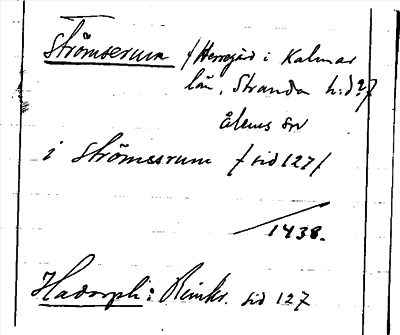 Strömserum /Herregård i Kalmar
län, Stranda h:d?/
Ålems sn
i Strömesrum /sid 127/
1438.
Hadorph: Rimkr. sid 127